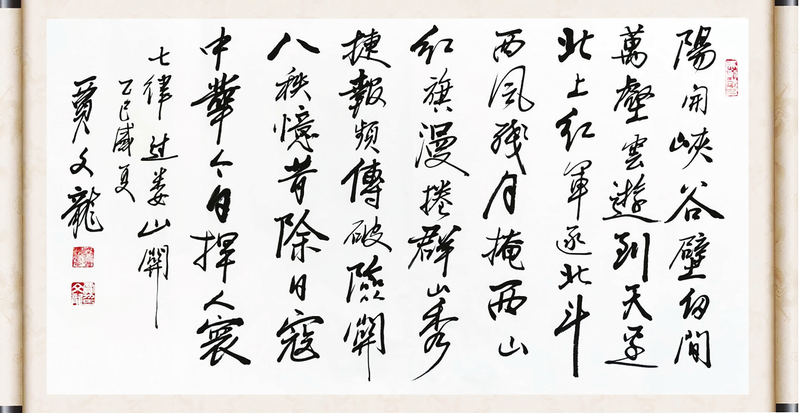 陽開峽谷壁間
萬壑雲遊到天邊
北上紅軍逐北斗
西風殘月掩西山
紅旗漫捲群山秀
捷報頻傳破險關
八秩憶昔除日寇
中華今日捍人寰
七律 过娄山關
乙巳盛夏
賈文龍